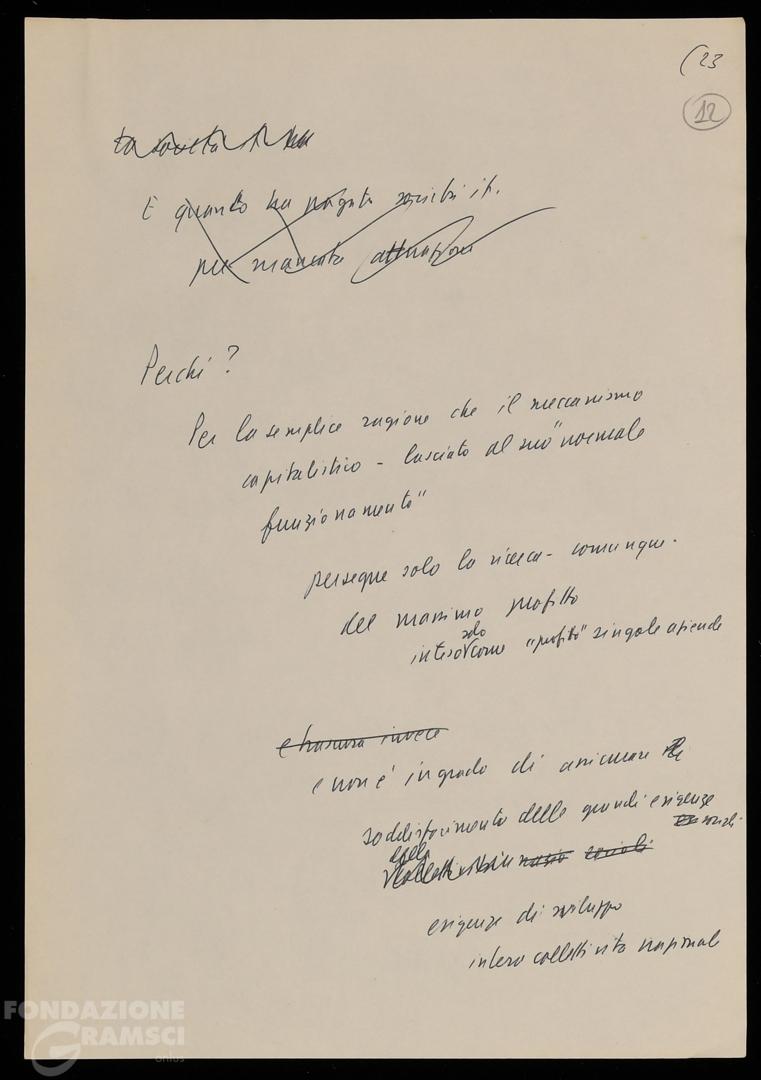 (23
12
la società
E quando ha pagato società it.
per mancata attuazione
Perché?
Per la semplice ragione che il meccanismo
capitalistico - lasciato al suo "normale
funzionamento"
persegue solo la ricerca - comunque -
del massimo profitto
solo
inteso come "profitto" singole aziende
e trascura invece
e non è in grado di assicurare
soddisfacimento delle grandi esigenze
sociali
sociali
esigenze di sviluppo
intera collettività nazionale
FONDAZIONE
GRAMSCI
onlus